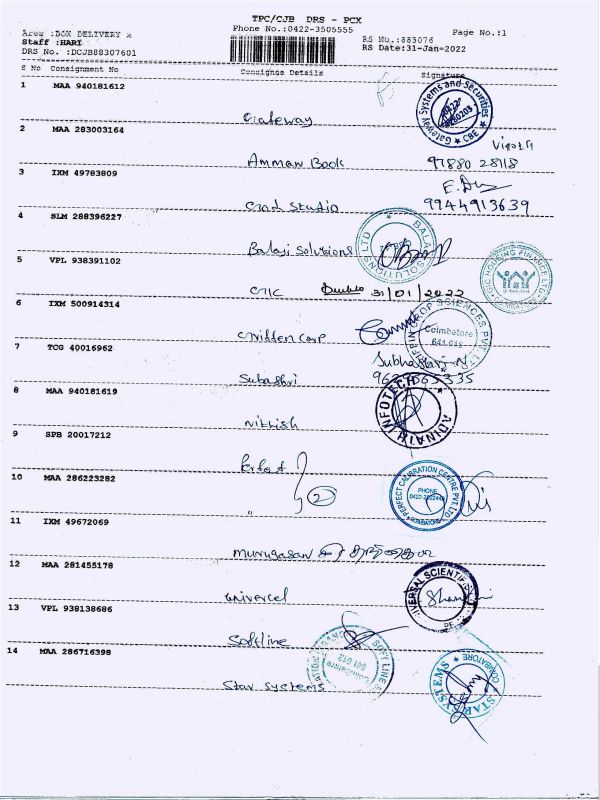 TPC/CJB DRS - PCX
Area :BOX DELIVERY x Phone No.:0422-3505555 Page No.:1
Staff :HARI RS No.:883076
DRS No. :DCJB88307601 RS Date:31-Jan-2022
S No Consignment No Consignee Details Signature
1 MAA 940181612
Gateway
Gateway Systems and Securities ★ CBE ★
2 MAA 283003164
Amman Book 97880 28118
3 IXM 49783809
9944913639
4 SLM 288396227
Balaji Solutions
BALAJI SOLUTIONS LTD
5 VPL 938391102
31/01/2022
HOUSING FINANCE LTD
6 IXM 500914314
CROP SCIENCES PVT LTD
Coimbatore
7 TCG 40016962
Subashri
8 MAA 940181619
INFOTECH
9 SPB 20017212
Perfect
10 MAA 286223282
" 2
PERFECT CALIBRATION CENTRE PVT. LTD.
PHONE
COIMBATORE
11 IXM 49672069
Murugasan
12 MAA 281455178
Univercel
UNIVERSAL SCIENTIFIC
13 VPL 938138686
Softline
Coimbatore
641 042
14 MAA 286716398
Star Systems
STAR SYSTEMS ★ COIMBATORE ★